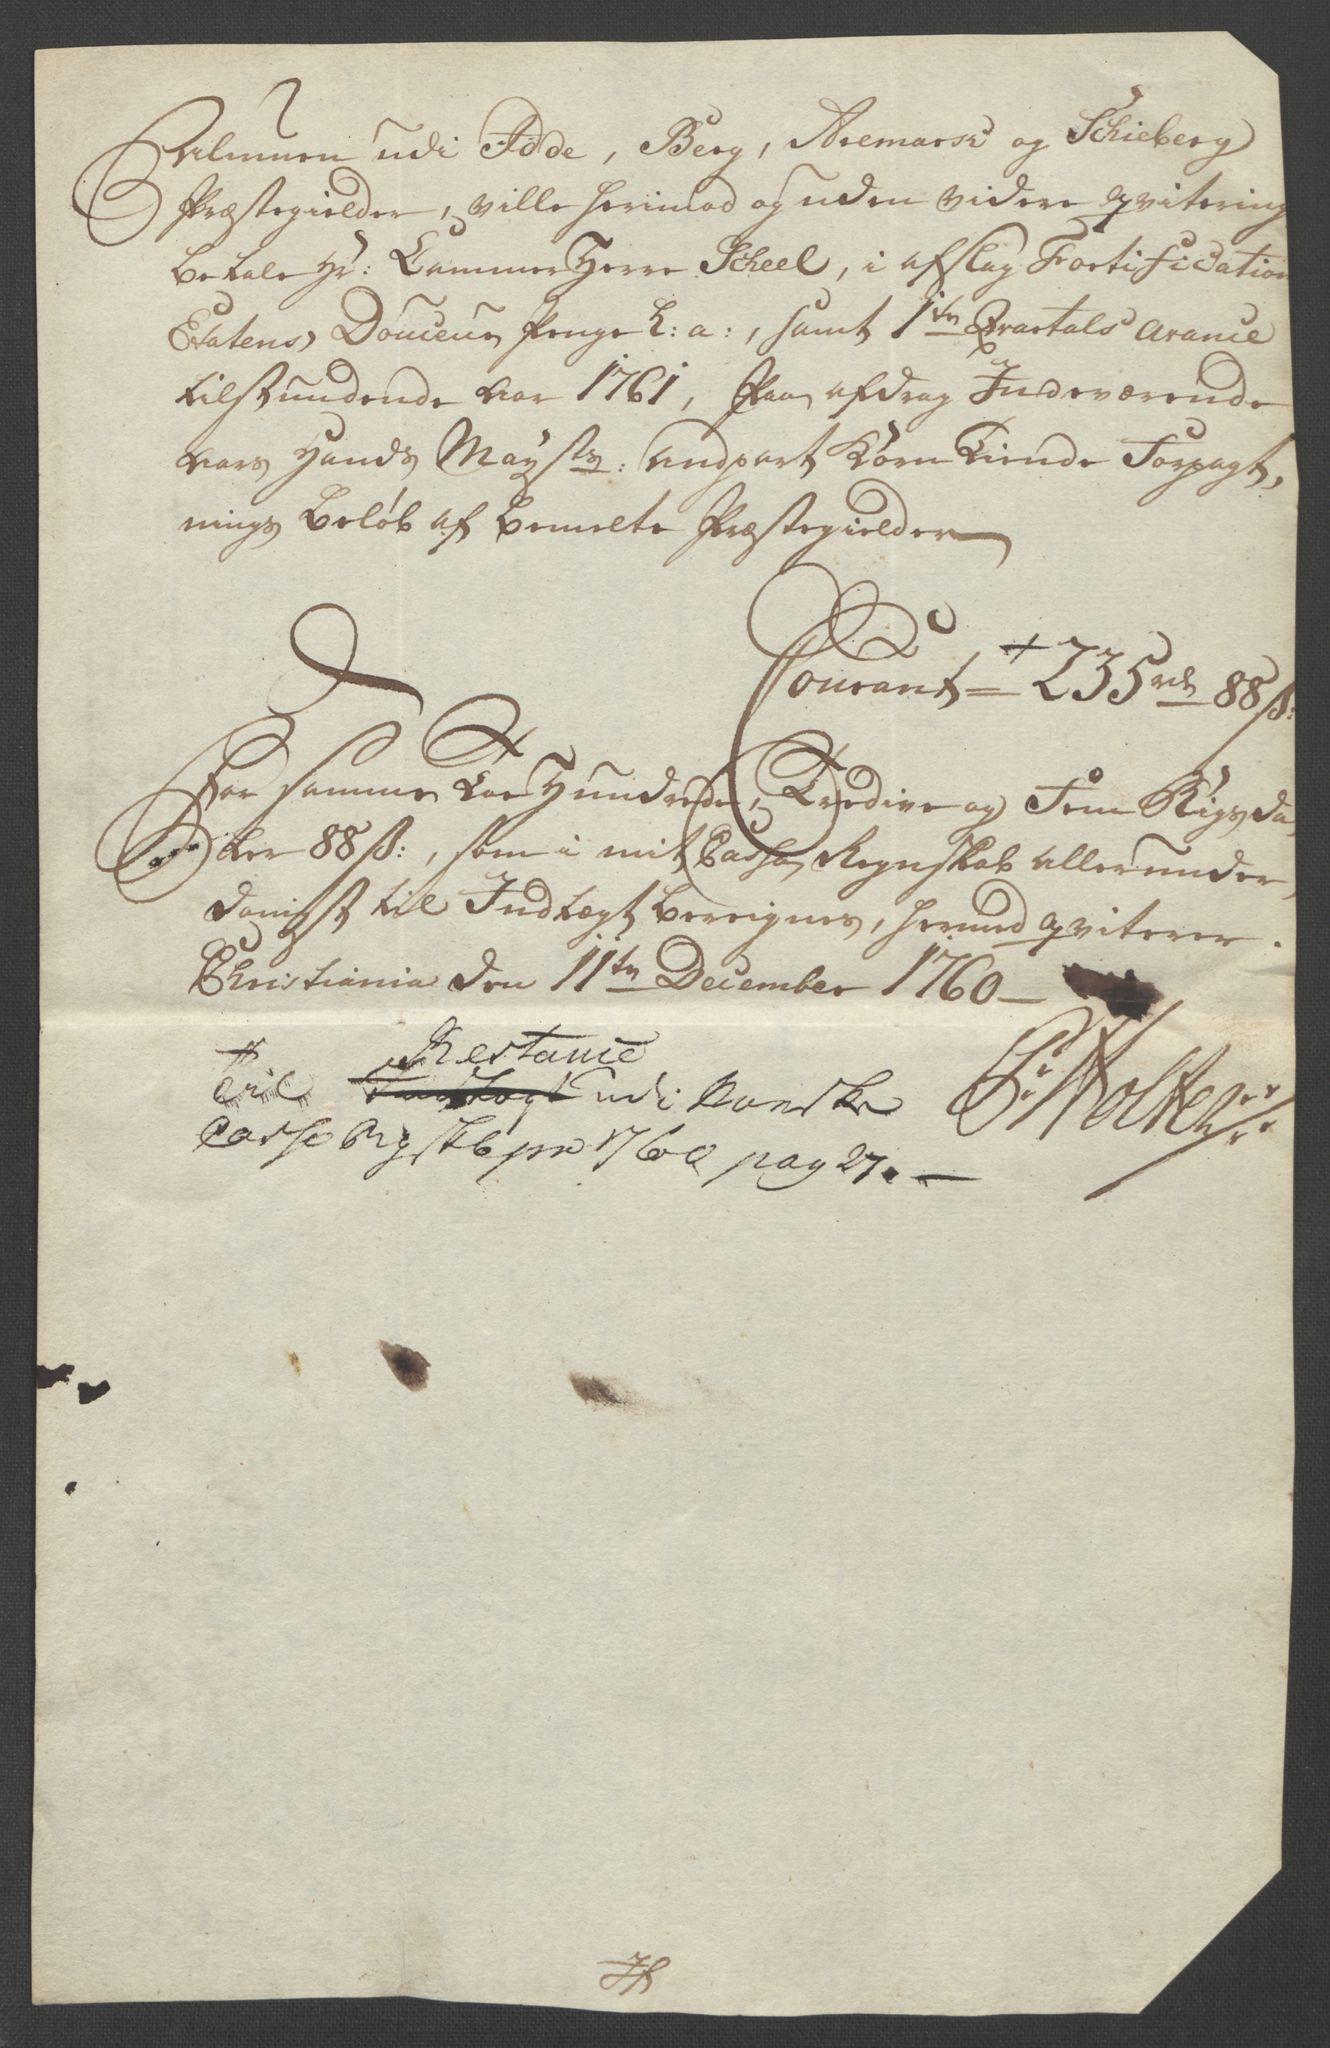 Almuen udi Idde, Berg, Aremarch og Schieberg
Præstegielder, ville herimod og uden videre qvitering
betale Hr: Cammer Herre Scheel, i afslag Fortification
Etatens Douceur Penge h: a:, samt 1ste Qvartals avance
tilstundende aar 1761, paa afdrag Indeværende
aars Hands Mayts: andpart Korn Tiende Forpagt,
nings beløb af bemelte Præstegielder
Courant = 235 rdr 88 ß:
For samme Toe Hundrede, Tredive og Fem Rigsda,
ler 88 ß:, som i mit Cassa Regnskab allerunder,
danigst til Indtægt bereignes, hermed qviterer.
Christiania den 11te December 1760
Restance
til udi Danske
Casse Rgskb pro 1760 pag 27.